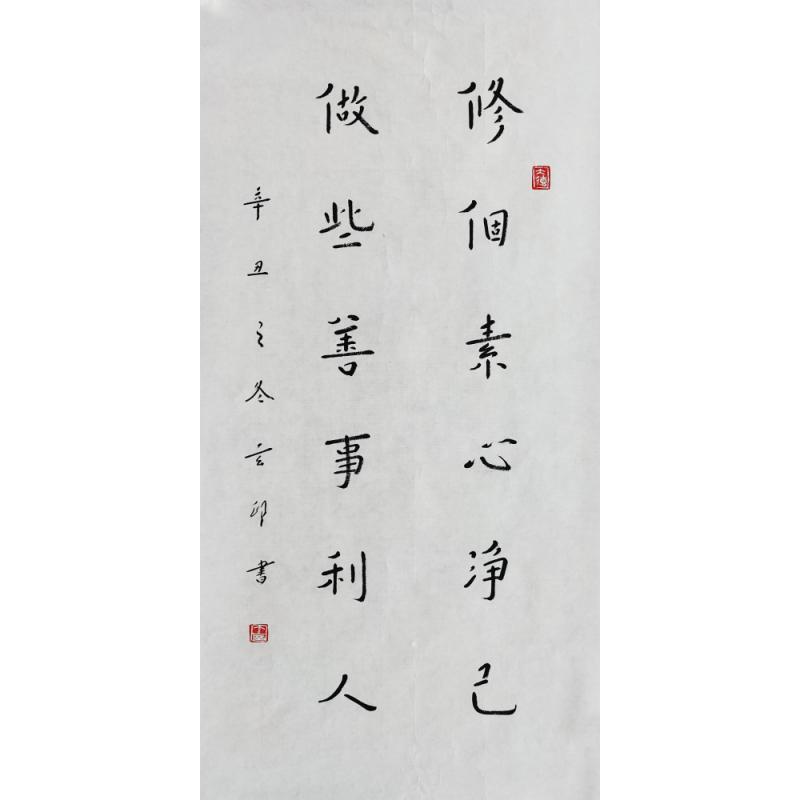 修個素心净己
做些善事利人
辛丑之冬玄印書